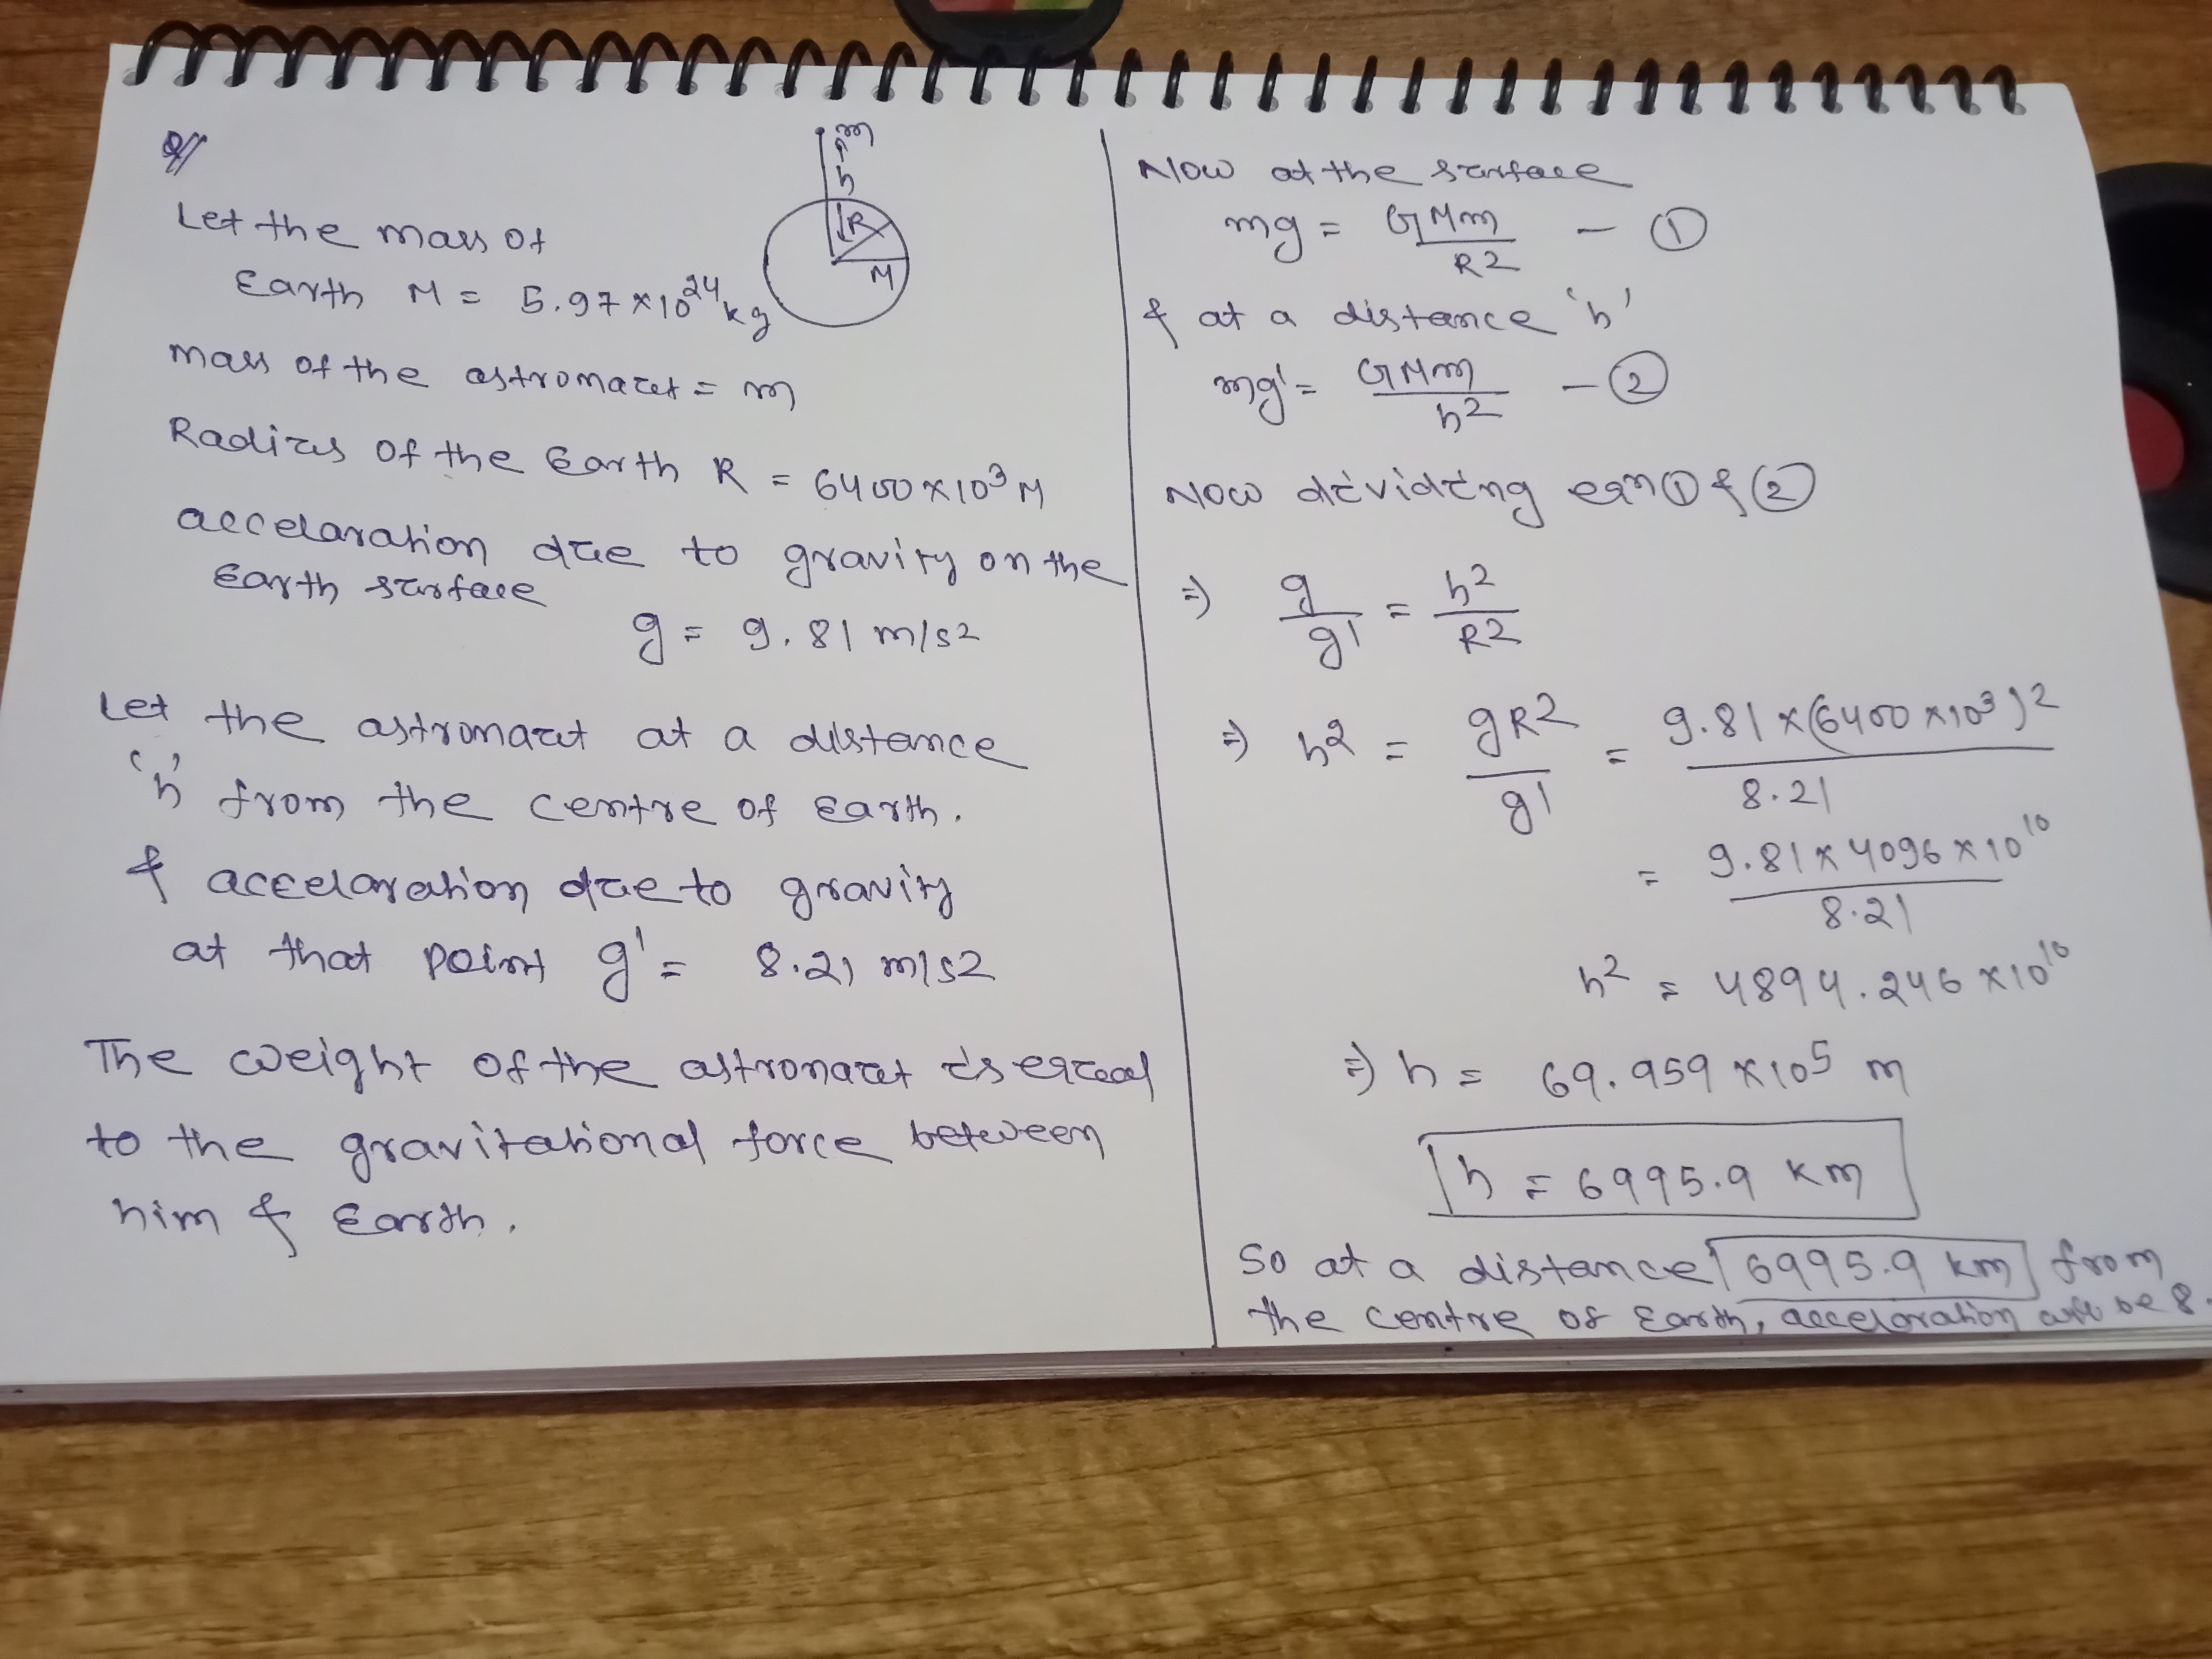 Q//
m
h
R
M
Let the mass of
Earth M = 5.97 × 10²⁴ kg
mass of the astronaut = m
Radius of the Earth R = 6400 × 10³ M
accelaration due to gravity on the
Earth surface
g = 9.81 m/s2
Let the astronaut at a distance
'h' from the centre of Earth.
& accelaration due to gravity
at that point g' = 8.21 m/s2
The weight of the astronaut is equal
to the gravitational force between
him & Earth.
Now at the surface
mg = GMm/R2 - ①
& at a distance 'h'
mg' = GMm/h2 - ②
Now dividing eqn ① & ②
=) g/g' = h2/R2
=) h2 = gR2/g' = 9.81 × (6400 × 10³)2/8.21
= 9.81 × 4096 × 10¹⁰/8.21
h2 = 4894.246 × 10¹⁰
=) h = 69.959 × 10⁵ m
h = 6995.9 km
So at a distance 6995.9 km from
the centre of Earth, acceloration will be 8.